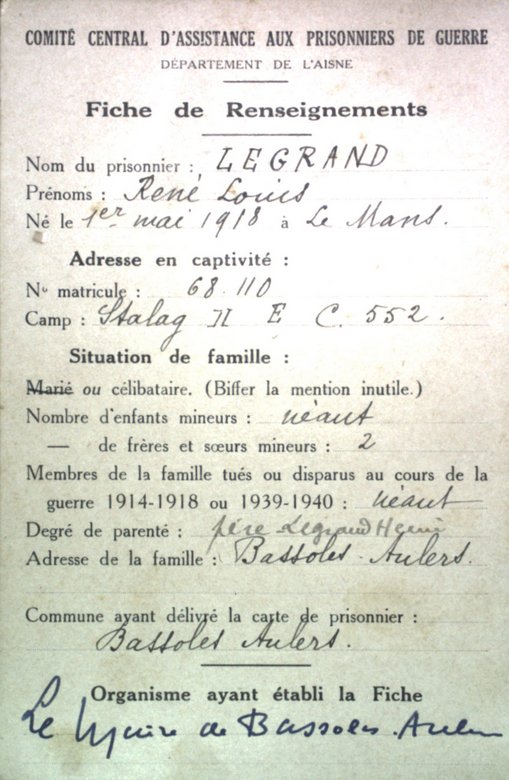 COMITÉ CENTRAL D'ASSISTANCE AUX PRISONNIERS DE GUERRE
DÉPARTEMENT DE L'AISNE
Fiche de Renseignements
Nom du prisonnier : LEGRAND
Prénoms : René, Louis
Né le 1er mai 1918 à Le Mans.
Adresse en captivité :
No matricule : 68 110
Camp : Stalag II E C. 552.
Situation de famille :
Marié ou célibataire. (Biffer la mention inutile.)
Nombre d'enfants mineurs : néant
— de frères et sœurs mineurs : 2
Membres de la famille tués ou disparus au cours de la
guerre 1914-1918 ou 1939-1940 : néant
Degré de parenté : père Legrand Henri
Adresse de la famille : Bassoles-Aulers.
Commune ayant délivré la carte de prisonnier :
Bassoles Aulers.
Organisme ayant établi la Fiche
Le Maire de Bassoles-Aulers